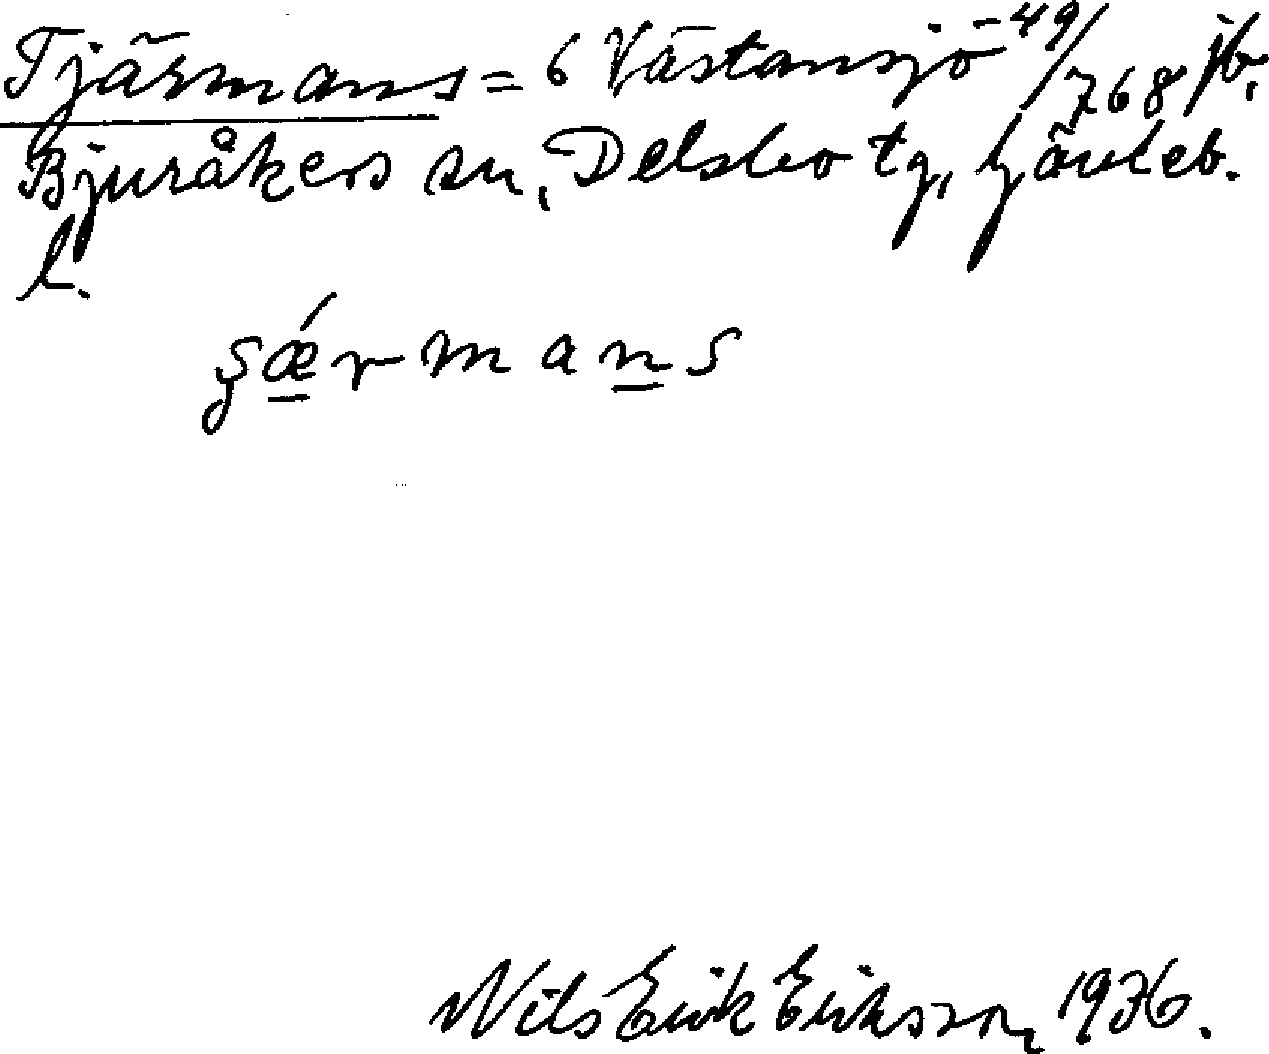 Tjärmans = 6 Västansjö 49/768 jb.
Bjuråkers sn, Delsbo tg, Gävleb.
l.
ʂǽrmans
Nils Erik Eriksson, 1936.